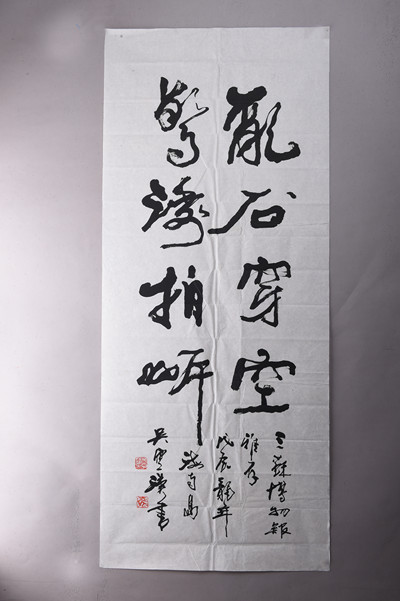 亂石穿空
驚濤拍岸
三蘇博物館
雅存
戊辰龍年
海南島
吳 書